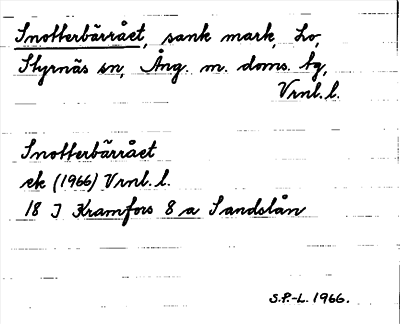 Snotterbärrået, sank mark, Lo,
Styrnäs sn, Ång. m. doms. tg,
Vrnl. l.
Snotterbärrået
ek (1966) Vrnl. l.
18 J Kramfors 8 a Sandslån
S.P.-L. 1966.